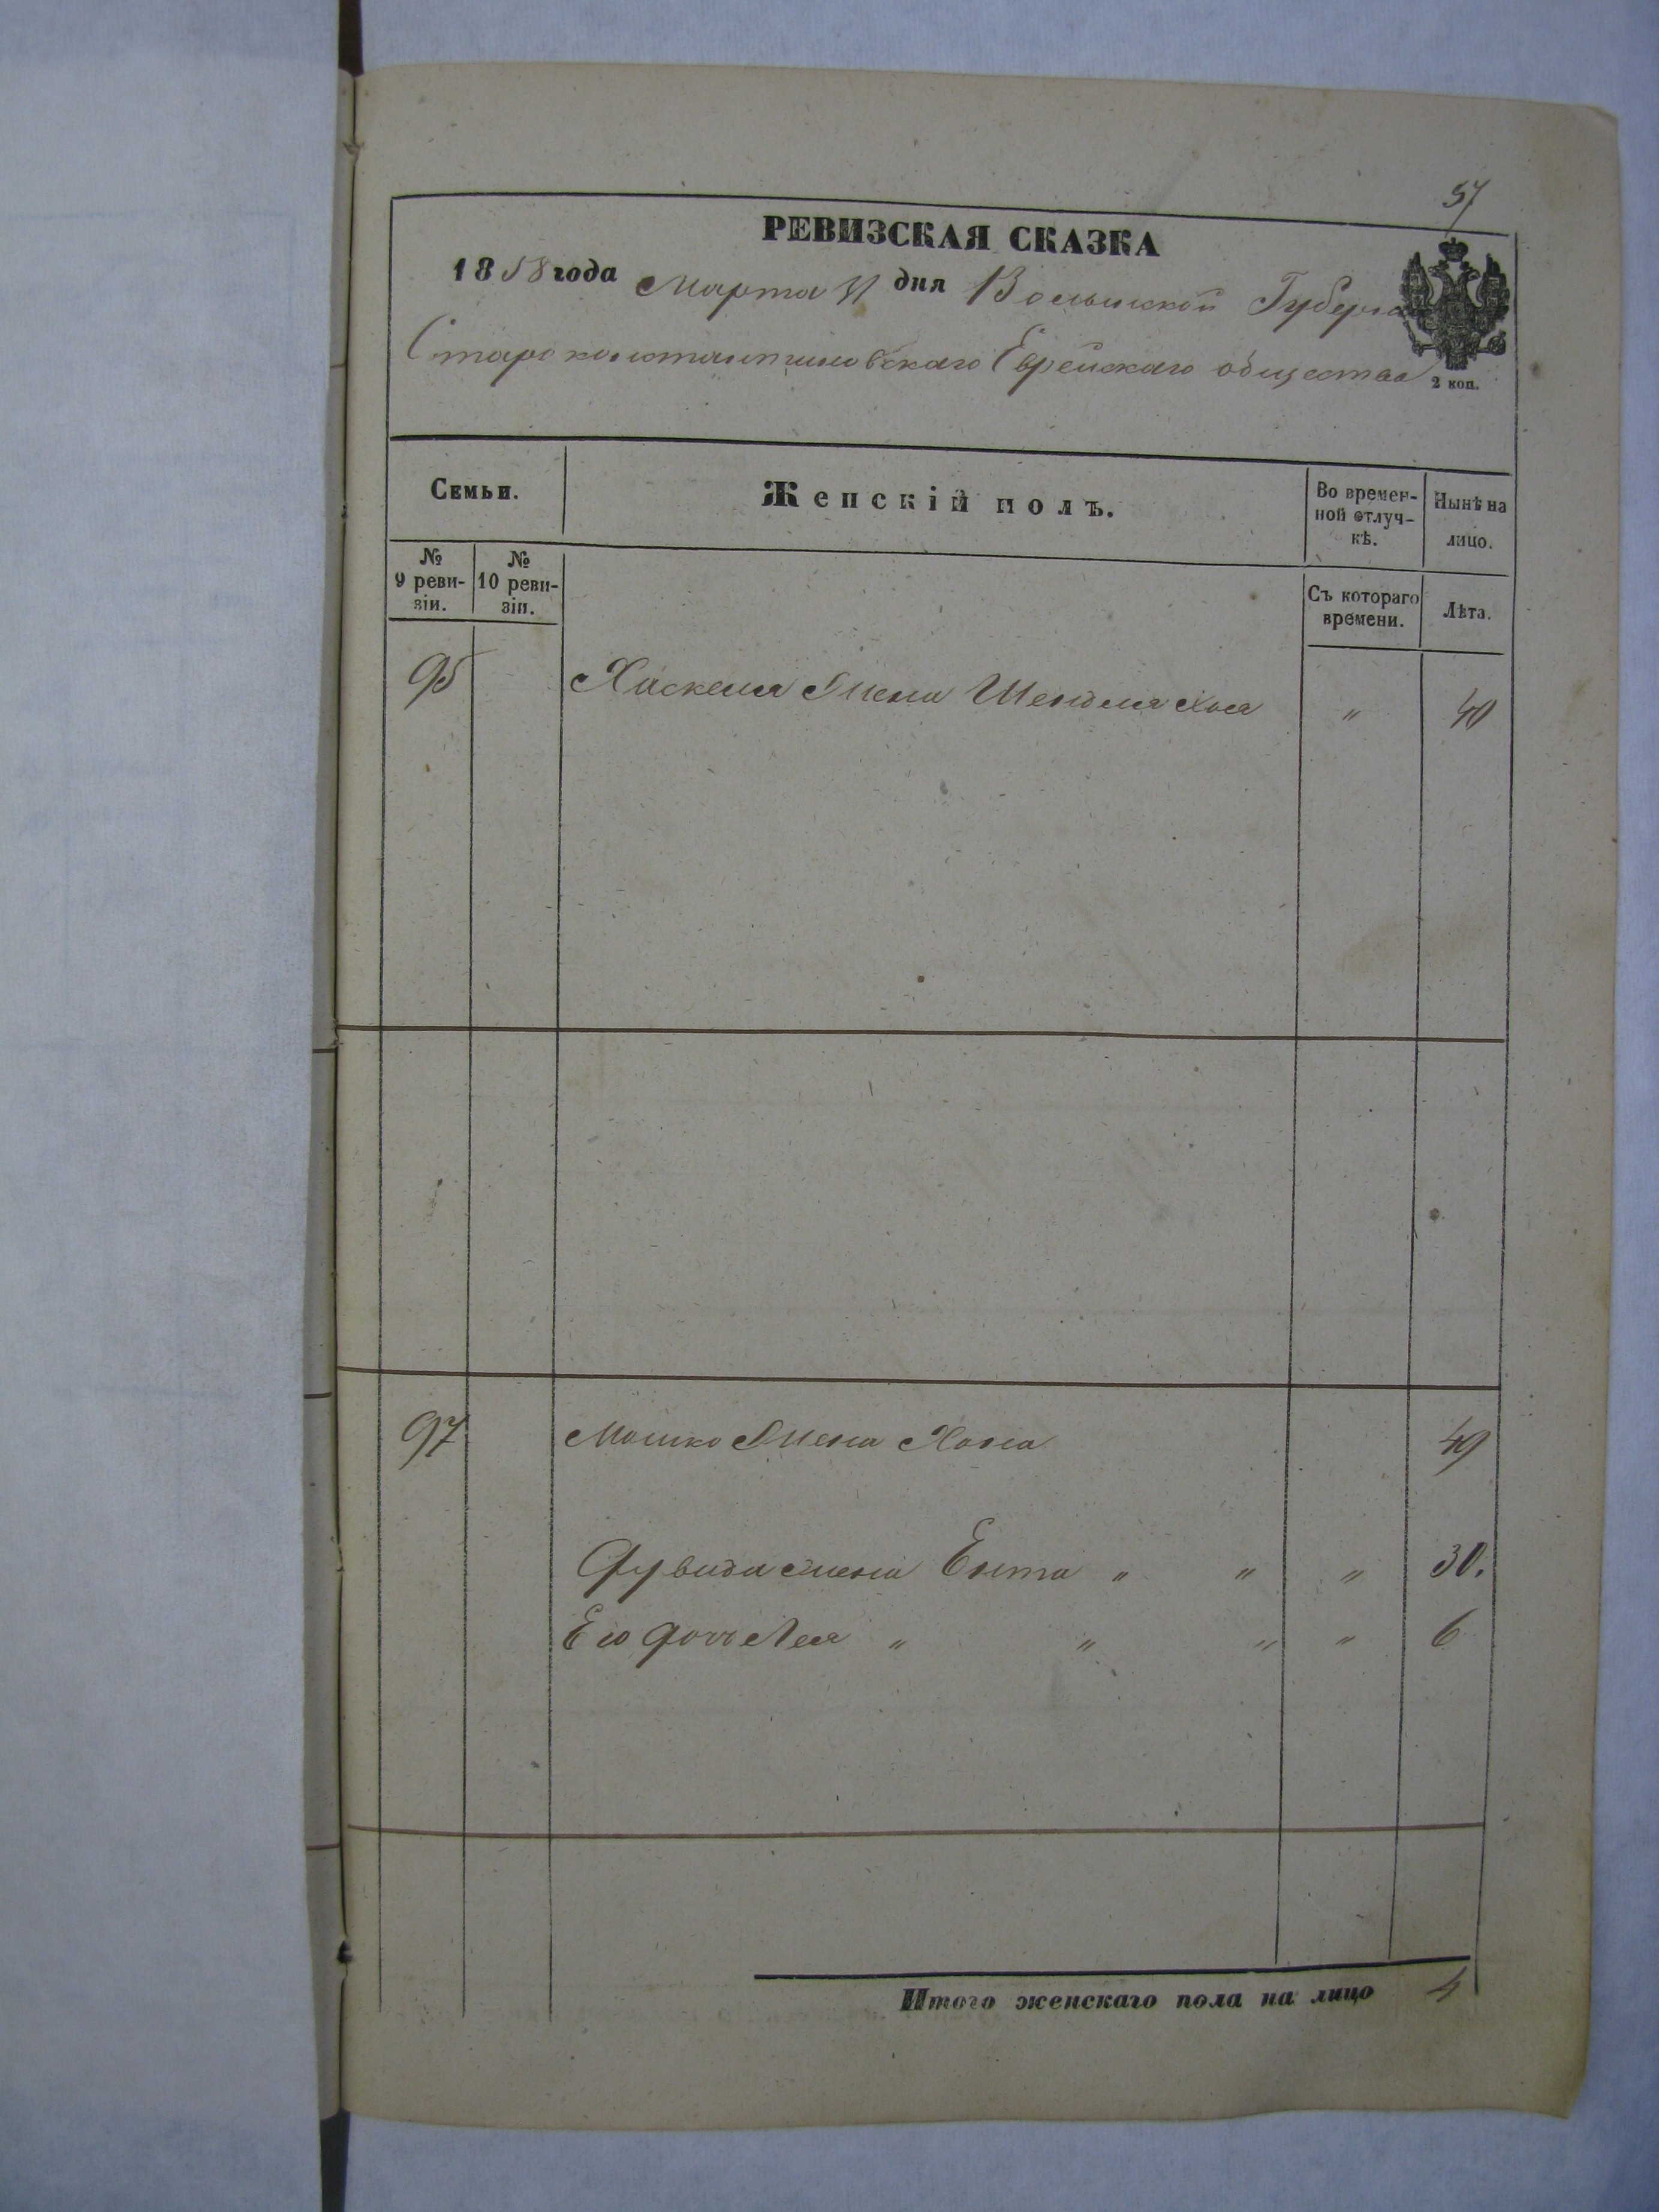 57
РЕВИЗСКАЯ СКАЗКА
1858 года Марта 31 дня Волынской Губерн
Староконстантиновскаго Еврейскаго общества
2 коп.
Семьи. Женскій полъ. Во времен- Нынѣ на
ной отлуч- лицо.
кѣ.
№ №
9 реви- 10 реви- Съ котораго Лѣта.
зіи. зіи. времени.
95 Хаскеля Жена Шендля " 40
97 Мошко Жена Хана 49
жена Ента " " " 30.
Его дочь Лея " " " " 6
Итого женскаго пола на лицо 4